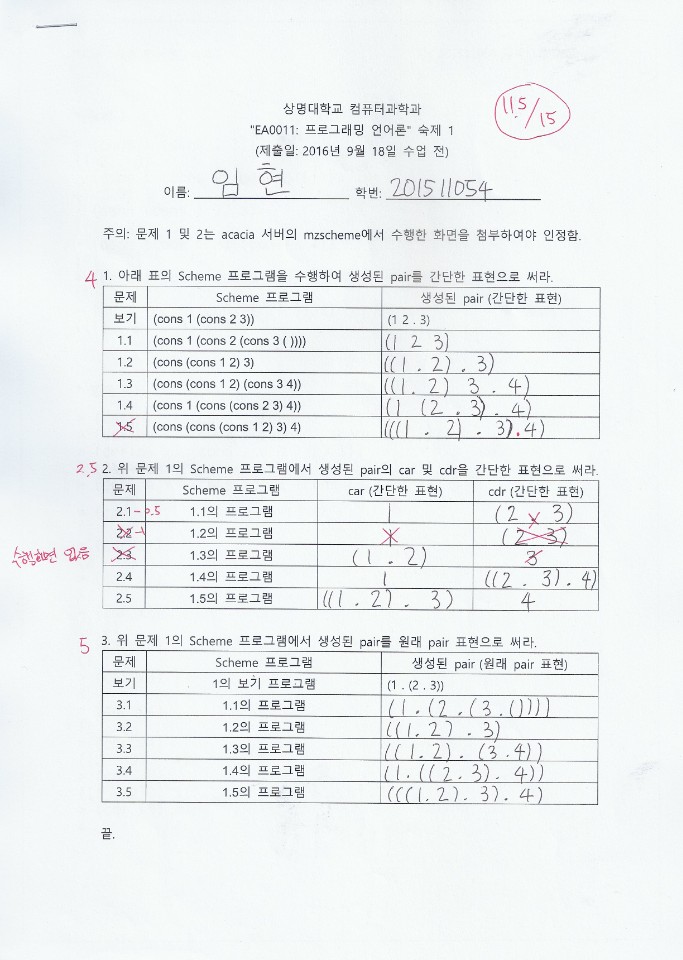 상명대학교 컴퓨터과학과
11.5/15
"EA0011: 프로그래밍 언어론" 숙제 1
(제출일: 2016년 9월 18일 수업 전)
이름: 임 현 학번: 201511054
주의: 문제 1 및 2는 acacia 서버의 mzscheme에서 수행한 화면을 첨부하여야 인정함.
4 1. 아래 표의 Scheme 프로그램을 수행하여 생성된 pair를 간단한 표현으로 써라.
문제 Scheme 프로그램 생성된 pair (간단한 표현)
보기 (cons 1 (cons 2 3)) (1 2 . 3)
1.1 (cons 1 (cons 2 (cons 3 ( )))) (1 2 3)
1.2 (cons (cons 1 2) 3) ((1 . 2) . 3)
1.3 (cons (cons 1 2) (cons 3 4)) ((1. 2) 3 . 4)
1.4 (cons 1 (cons (cons 2 3) 4)) (1 (2 . 3) . 4)
1.5 (cons (cons (cons 1 2) 3) 4) (((1 . 2) . 3) . 4)
2.5 2. 위 문제 1의 Scheme 프로그램에서 생성된 pair의 car 및 cdr을 간단한 표현으로 써라.
문제 Scheme 프로그램 car (간단한 표현) cdr (간단한 표현)
2.1 -0.5 1.1의 프로그램 1 (2 3)
2.2 -1 1.2의 프로그램 (2 3)
수행화면 없음 2.3 1.3의 프로그램 (1 . 2) 3
2.4 1.4의 프로그램 1 ((2 . 3) . 4)
2.5 1.5의 프로그램 ((1 . 2) . 3) 4
5 3. 위 문제 1의 Scheme 프로그램에서 생성된 pair를 원래 pair 표현으로 써라.
문제 Scheme 프로그램 생성된 pair (원래 pair 표현)
보기 1의 보기 프로그램 (1 . (2 . 3))
3.1 1.1의 프로그램 (1 . (2 . (3 . ())))
3.2 1.2의 프로그램 ((1. 2) . 3)
3.3 1.3의 프로그램 ((1. 2) . (3 . 4))
3.4 1.4의 프로그램 (1. ((2 . 3) . 4))
3.5 1.5의 프로그램 (((1. 2) . 3) . 4)
끝.